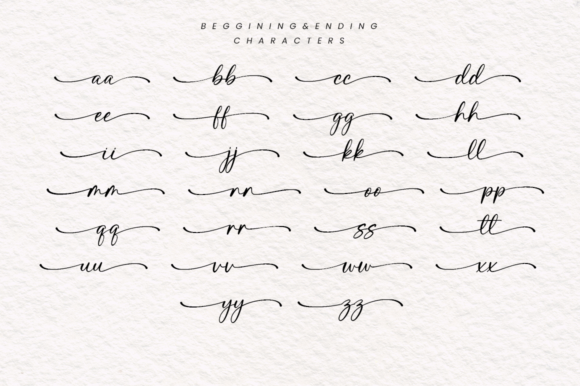 BEGGINING&ENDING
CHARACTERS
aa bb cc dd
ee ff gg hh
ii jj kk ll
mm nn oo pp
qq rr ss tt
uu vv ww xx
yy zz